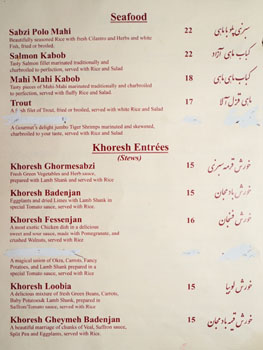 Seafood
Sabzi Polo Mahi 22 سبزی پلو با ماهی
Beautifully seasoned Rice with fresh Cilantro and Herbs and white
Fish, fried or broiled.
Salmon Kabob 22 کباب ماهی آزاد
Tasty Salmon fillet marinated traditionally and
charbroiled to perfection, served with Rice and Salad
Mahi Mahi Kabob 18 کباب ماهی ماهی
Tasty pieces of Mahi Mahi marinated traditionally and charbroiled
to perfection, served with fluffy Rice and Salad.
Trout 17 ماهی قزل آلا
fish filet of Trout, fried or broiled, served with white Rice and Salad
A gourmet's delight jumbo Tiger Shrimps marinated and skewered,
charbroiled to your taste, served with Rice and Salad.
Khoresh Entrées
(Stews)
Khoresh Ghormesabzi 15 خورش قرمه سبزی
Fresh Green Vegetables and Herb sauce,
prepared with Lamb Shank and served with Rice
Khoresh Badenjan 15 خورش بادمجان
Eggplants and dried Limes with Lamb Shank in
special Tomato sauce, served with Rice.
Khoresh Fessenjan 16 خورش فسنجان
A most exotic Chicken dish in a delicious
sweet and sour sauce, made with Pomegranate, and
crushed Walnuts, served with Rice
A magical union of Okra, Carrots, Fancy
Potatoes, and Lamb Shank prepared in a
special Tomato sauce, served with Rice.
Khoresh Loobia 15 خورش لوبیا
A delicious mixture of fresh Green Beans, Carrots,
Baby Potatoes& Lamb Shank, prepared in
Saffron/Tomato sauce, served with Rice.
Khoresh Gheymeh Badenjan 15 خورش قیمه بادمجان
A beautiful marriage of chunks of Veal, Saffron sauce,
Split Pea and Eggplants, served with Rice.